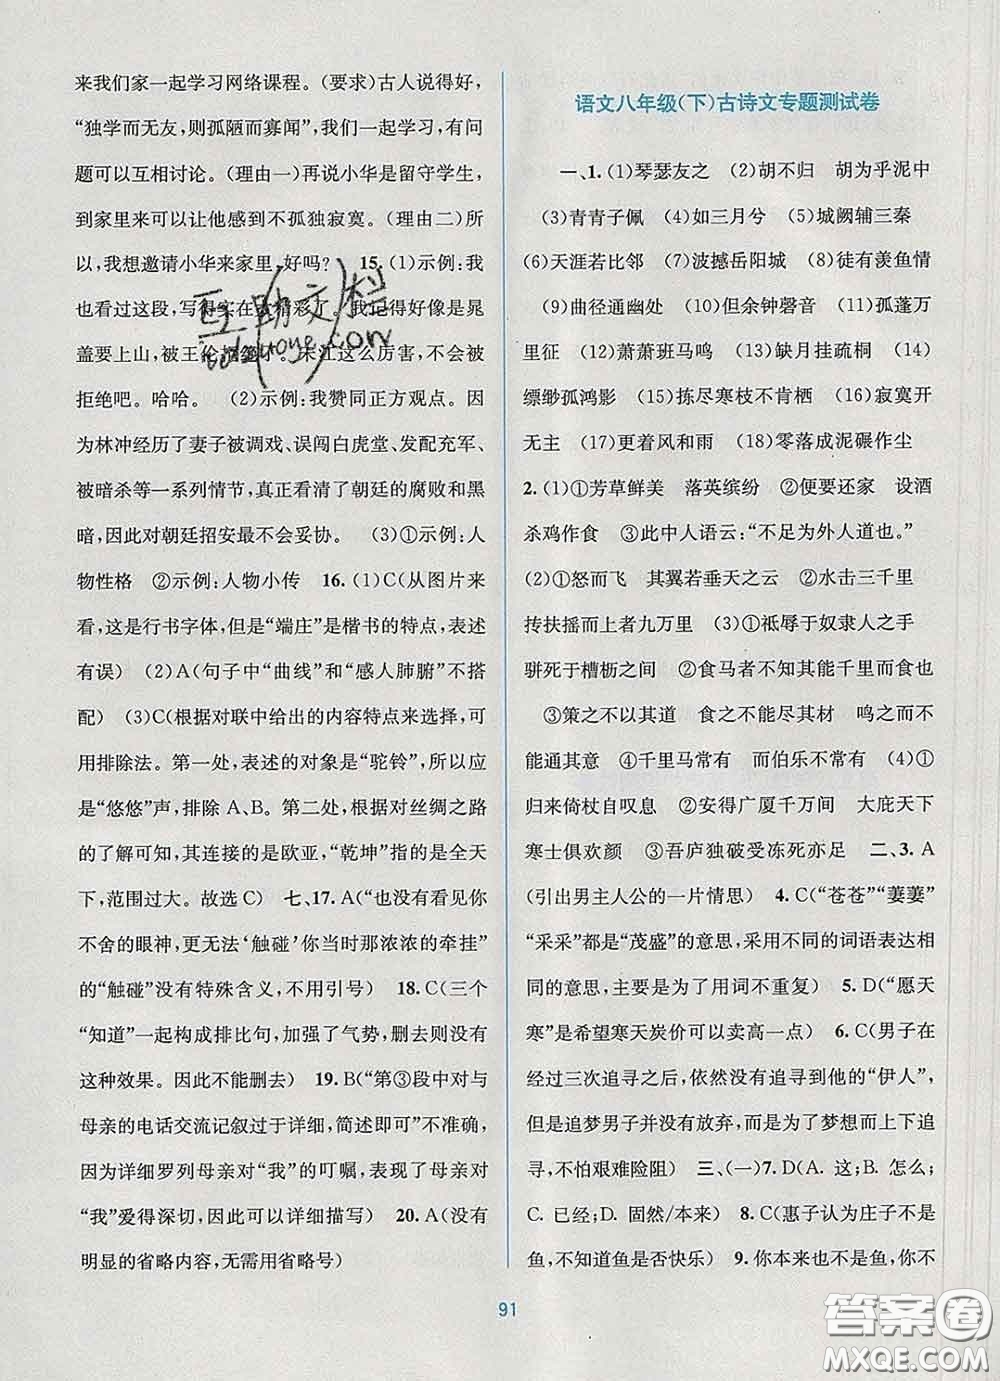 来我们家一起学习网络课程。(要求)古人说得好，
“独学而无友，则孤陋而寡闻”，我们一起学习，有问
题可以互相讨论。(理由一)再说小华是留守学生，
到家里来可以让他感到不孤独寂寞。(理由二)所
以，我想邀请小华来家里，好吗？ 15. (1)示例：我
也看过这段，写得实在太精彩了。我记得好像是晁
盖要上山，被王伦拒绝了。宋江这么厉害，不会被
拒绝吧。哈哈。 (2)示例：我赞同正方观点。因
为林冲经历了妻子被调戏、误闯白虎堂、发配充军、
被暗杀等一系列情节，真正看清了朝廷的腐败和黑
暗，因此对朝廷招安最不会妥协。 (3)①示例：人
物性格 ②示例：人物小传 16. (1)C(从图片来
看，这是行书字体，但是“端庄”是楷书的特点，表述
有误) (2)A(句子中“曲线”和“感人肺腑”不搭
配) (3)C(根据对联中给出的内容特点来选择，可
用排除法。第一处，表述的对象是“驼铃”，所以应
是“悠悠”声，排除 A、B。第二处，根据对丝绸之路
的了解可知，其连接的是欧亚，“乾坤”指的是全天
下，范围过大。故选 C) 七、17. A(“也没有看见你
不舍的眼神，更无法‘触碰’你当时那浓浓的牵挂”
的“触碰”没有特殊含义，不用引号) 18. C(三个
“知道”一起构成排比句，加强了气势，删去就没有
这种效果。因此不能删去) 19. B(“第③段中对与
母亲的电话交流记叙过于详细，可简略一些”错误，
因为详细罗列母亲对“我”的叮嘱，表现了母亲对
“我”爱得深切，因此可以详细描写) 20. A(没有
明显的省略内容，无需用省略号)
语文八年级(下)古诗文专题测试卷
一、1. (1)琴瑟友之 (2)胡不归 胡为乎泥中
(3)青青子佩 (4)如三月兮 (5)城阙辅三秦
(6)天涯若比邻 (7)波撼岳阳城 (8)徒有羡鱼情
(9)曲径通幽处 (10)但余钟磬音 (11)孤蓬万
里征 (12)萧萧班马鸣 (13)缺月挂疏桐 (14)
缥缈孤鸿影 (15)拣尽寒枝不肯栖 (16)寂寞开
无主 (17)更着风和雨 (18)零落成泥碾作尘
2. (1)①芳草鲜美 落英缤纷 ②便要还家 设酒
杀鸡作食 ③此中人语云：“不足为外人道也。”
(2)①怒而飞 其翼若垂天之云 ②水击三千里
抟扶摇而上者九万里 (3)①祗辱于奴隶人之手
骈死于槽枥之间 ②食马者不知其能千里而食也
③策之不以其道 食之不能尽其材 鸣之而不
能通其意 ④千里马常有 而伯乐不常有 (4)①
归来倚杖自叹息 ②安得广厦千万间 大庇天下
寒士俱欢颜 ③吾庐独破受冻死亦足 二、3. A
(引出男主人公的一片情思) 4. C(“苍苍”“萋萋”
“采采”都是“茂盛”的意思，采用不同的词语表达相
同的意思，主要是为了用词不重复) 5. D(“愿天
寒”是希望寒天炭价可以卖高一点) 6. C(男子在
经过三次追寻之后，依然没有追寻到他的“伊人”，
但是追梦男子并没有放弃，而是为了梦想而上下追
寻，不怕艰难险阻) 三、(一)7. D(A. 这；B. 怎么；
C. 已经；D. 固然/本来) 8. C(惠子认为庄子不是
鱼，不知道鱼是否快乐) 9. 你本来也不是鱼，你不
91
答案圈
MXQE.COM